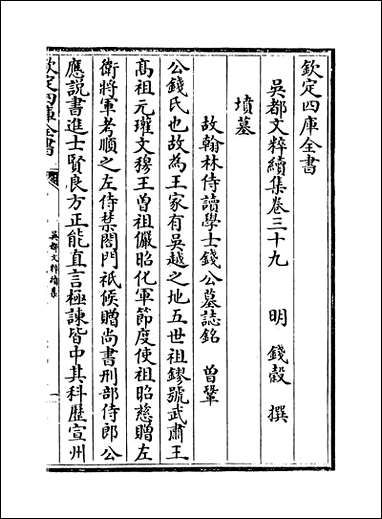 欽定四庫全書
吳都文粹續集卷三十九
明 錢穀 撰
墳墓
故翰林侍讀學士錢公墓誌銘 曾鞏
公錢氏也故為王家有吳越之地五世祖鏐號武肅王
髙祖元瓘文穆王曾祖儼昭化軍節度使祖昭慈贈左
衛將軍考順之左侍禁閤門祇候贈尚書刑部侍郎公
應説書進士賢良方正能直言極諫皆中其科歴宣州
欽定四庫全書
吳都文粹續集
一